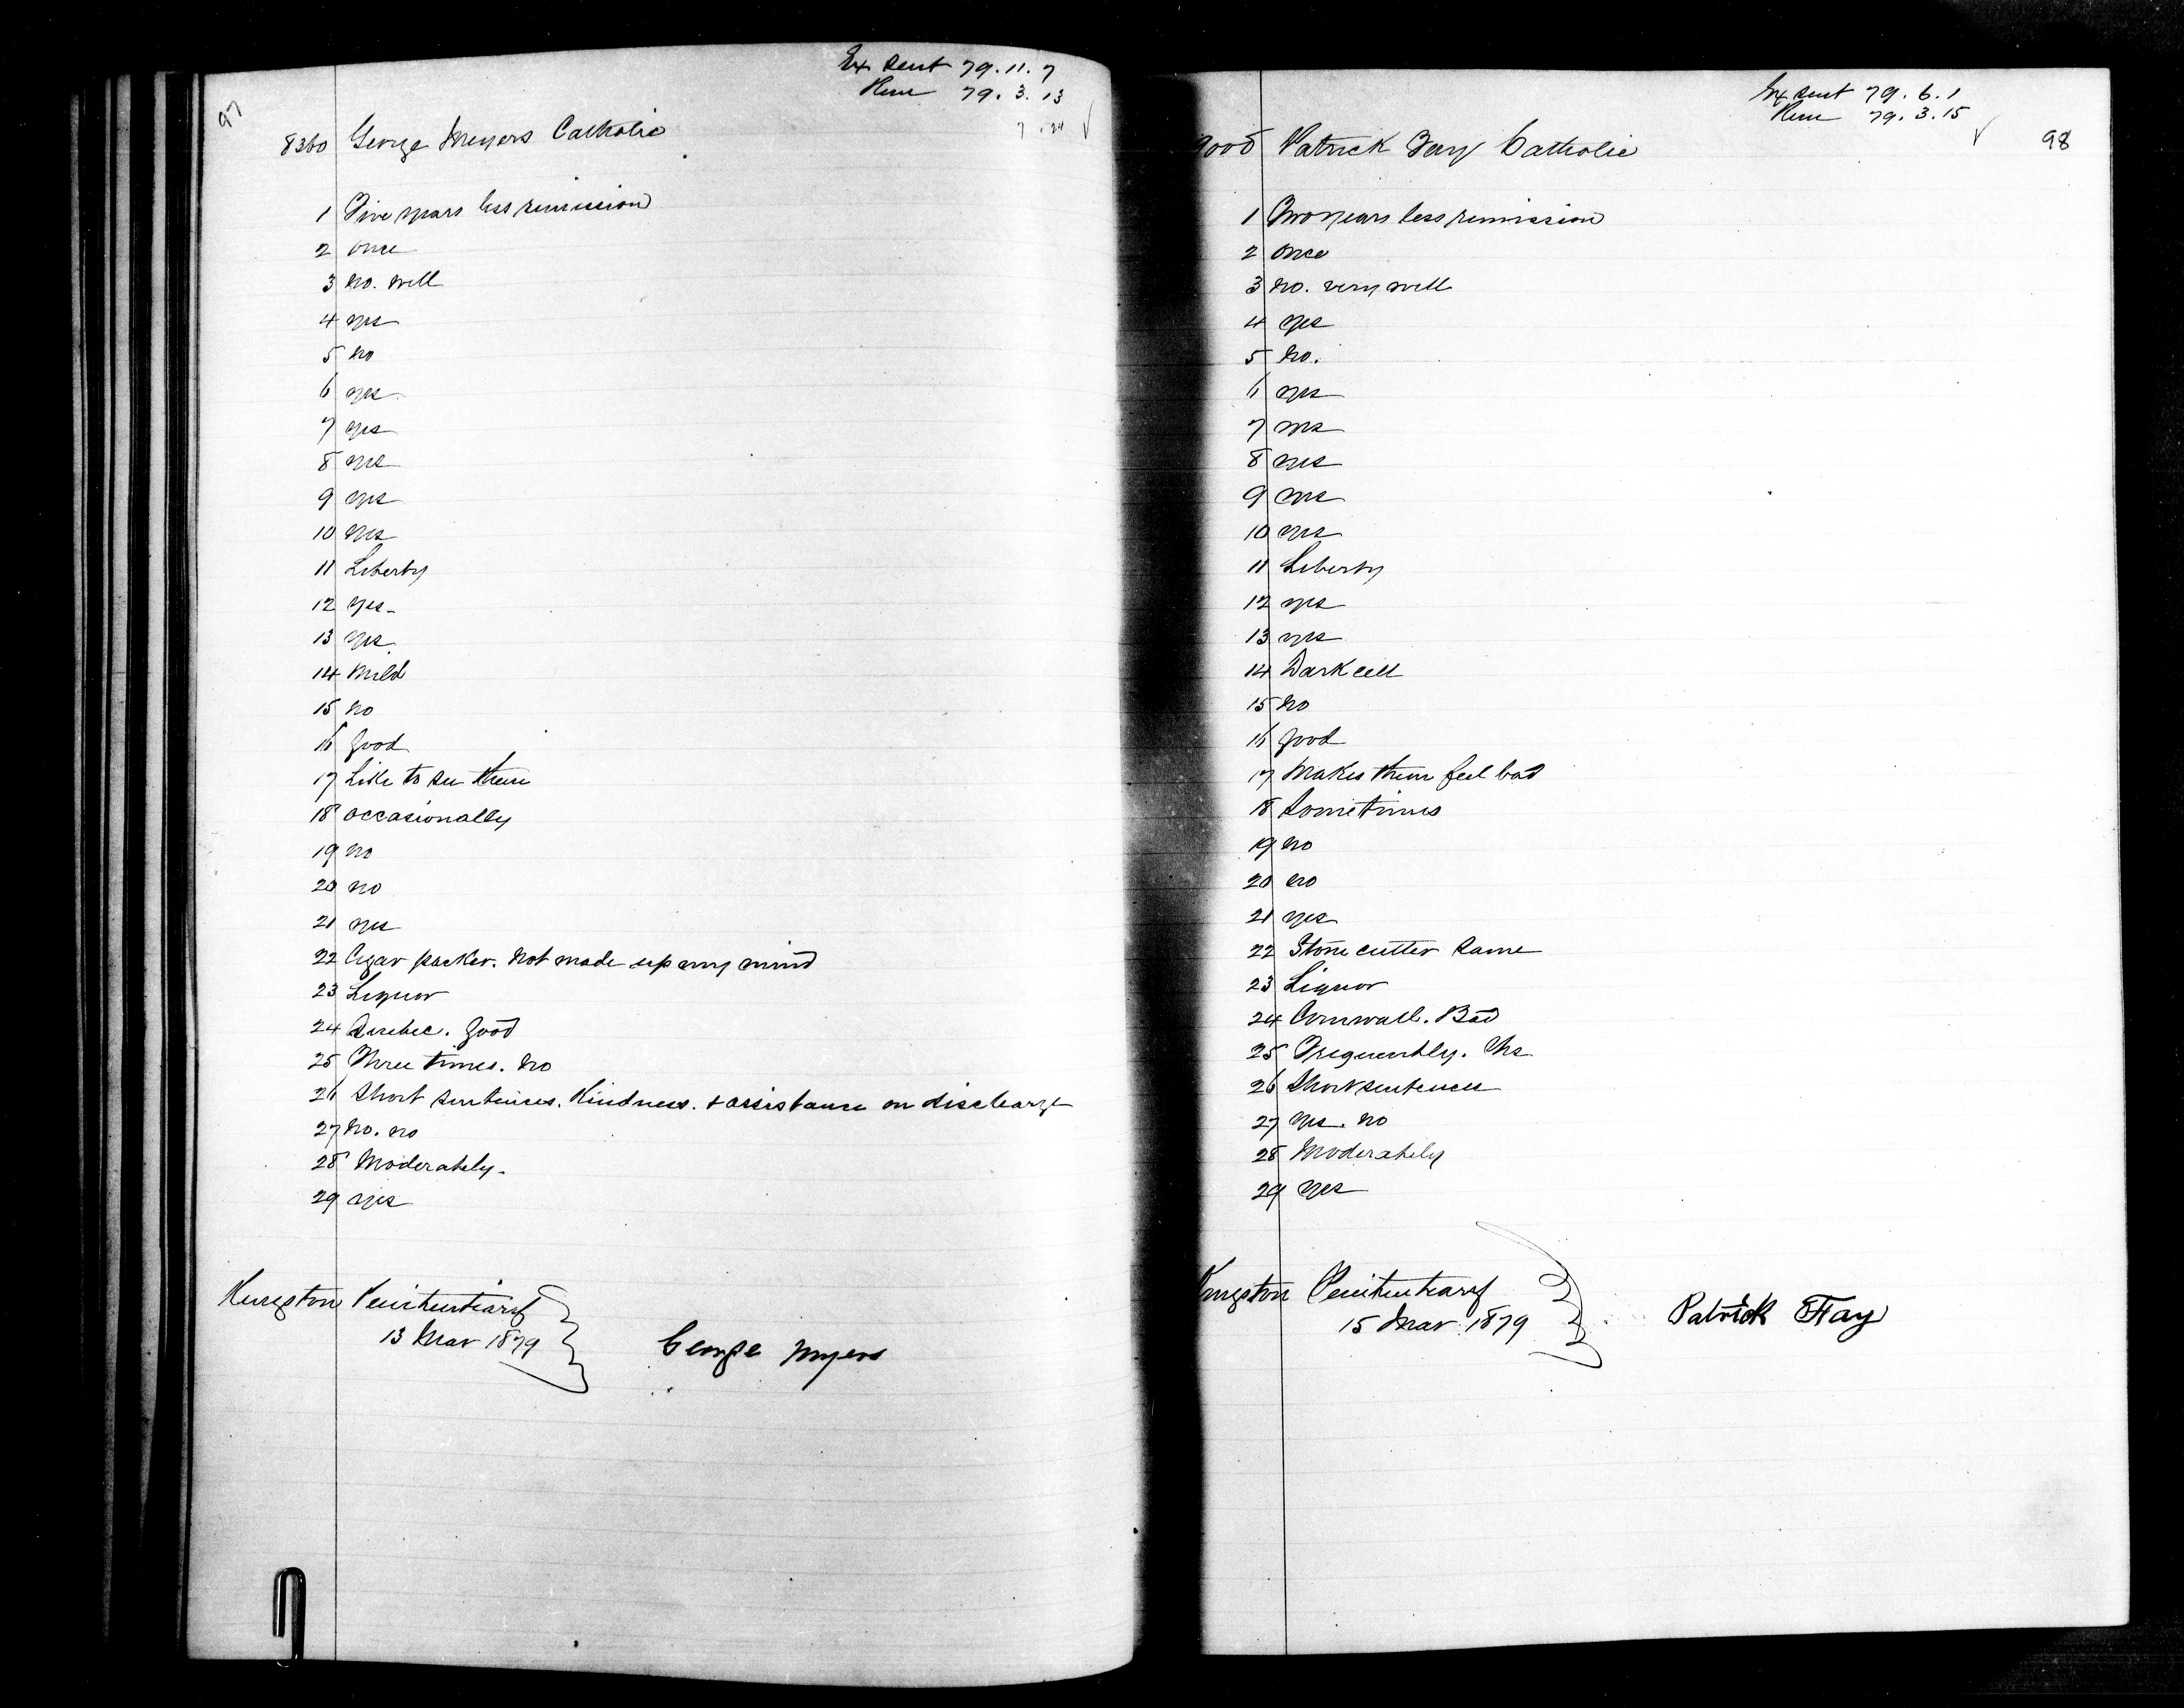 97
Ex Sent 79.11.7
Rem 79.3.13
7.24
8360 George Meyers Catholic
1 Five years less remission
2 once
3 no. well
4 yes
5 no
6 yes
7 yes
8 yes
9 yes
10 yes
11 Liberty
12 yes
13 yes
14 Mild
15 no
16 good
17 Like to see them
18 occasionally
19 no
20 no
21 yes
22 Cigar packer. Not made up my mind
23 Liquor
24 Quebec. Good
25 Three times. no
26 Short sentences. Kindness. & assistance on discharge
27 no. no
28 Moderately
29 yes
Kingston Penitentiary
13 Mar 1879
George Myers
Ex Sent 79.6.1
Rem 79.3.15
98
Patrick Fay Catholic
1 Two years less remission
2 once
3 no. very well
4 yes
5 no.
6 yes
7 yes
8 yes
9 yes
10 yes
11 Liberty
12 yes
13 yes
14 Dark cell
15 no
16 good
17 Makes them feel bad
18 Sometimes
19 no
20 no
21 yes
22 Stone cutter Same
23 Liquor
24 Cornwall. Bad
25 Frequently. Yes
26 Short sentences
27 yes. no
28 Moderately
29 yes
Kingston Penitentiary
15 Mar 1879
Patrick Fay